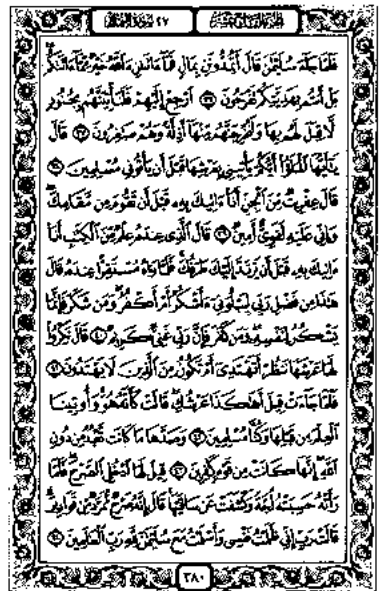 ٢٧ سورة النمل
فَلَمَّا جَآءَ سُلَيْمَٰنَ قَالَ أَتُمِدُّونَنِ بِمَالٍ فَمَآ ءَاتَىٰنِۦَ ٱللَّهُ خَيْرٌ مِّمَّآ ءَاتَىٰكُم
بَلْ أَنتُم بِهَدِيَّتِكُمْ تَفْرَحُونَ ٣٦ ٱرْجِعْ إِلَيْهِمْ فَلَنَأْتِيَنَّهُم بِجُنُودٍ
لَّا قِبَلَ لَهُم بِهَا وَلَنُخْرِجَنَّهُم مِّنْهَآ أَذِلَّةً وَهُمْ صَٰغِرُونَ ٣٧ قَالَ
يَٰٓأَيُّهَا ٱلْمَلَؤُا۟ أَيُّكُمْ يَأْتِينِى بِعَرْشِهَا قَبْلَ أَن يَأْتُونِى مُسْلِمِينَ ٣٨
قَالَ عِفْرِيتٌ مِّنَ ٱلْجِنِّ أَنَا۠ ءَاتِيكَ بِهِۦ قَبْلَ أَن تَقُومَ مِن مَّقَامِكَ
وَإِنِّى عَلَيْهِ لَقَوِىٌّ أَمِينٌ ٣٩ قَالَ ٱلَّذِى عِندَهُۥ عِلْمٌ مِّنَ ٱلْكِتَٰبِ أَنَا۠
ءَاتِيكَ بِهِۦ قَبْلَ أَن يَرْتَدَّ إِلَيْكَ طَرْفُكَ فَلَمَّا رَءَاهُ مُسْتَقِرًّا عِندَهُۥ قَالَ
هَٰذَا مِن فَضْلِ رَبِّى لِيَبْلُوَنِىٓ ءَأَشْكُرُ أَمْ أَكْفُرُ وَمَن شَكَرَ فَإِنَّمَا
يَشْكُرُ لِنَفْسِهِۦ وَمَن كَفَرَ فَإِنَّ رَبِّى غَنِىٌّ كَرِيمٌ ٤٠ قَالَ نَكِّرُوا۟
لَهَا عَرْشَهَا نَنظُرْ أَتَهْتَدِىٓ أَمْ تَكُونُ مِنَ ٱلَّذِينَ لَا يَهْتَدُونَ ٤١
فَلَمَّا جَآءَتْ قِيلَ أَهَٰكَذَا عَرْشُكِ قَالَتْ كَأَنَّهُۥ هُوَ وَأُوتِينَا
ٱلْعِلْمَ مِن قَبْلِهَا وَكُنَّا مُسْلِمِينَ ٤٢ وَصَدَّهَا مَا كَانَت تَّعْبُدُ مِن دُونِ
ٱللَّهِ إِنَّهَا كَانَتْ مِن قَوْمٍ كَٰفِرِينَ ٤٣ قِيلَ لَهَا ٱدْخُلِى ٱلصَّرْحَ فَلَمَّا
رَأَتْهُ حَسِبَتْهُ لُجَّةً وَكَشَفَتْ عَن سَاقَيْهَا قَالَ إِنَّهُۥ صَرْحٌ مُّمَرَّدٌ مِّن قَوَارِيرَ
قَالَتْ رَبِّ إِنِّى ظَلَمْتُ نَفْسِى وَأَسْلَمْتُ مَعَ سُلَيْمَٰنَ لِلَّهِ رَبِّ ٱلْعَٰلَمِينَ ٤٤
٣٨٠